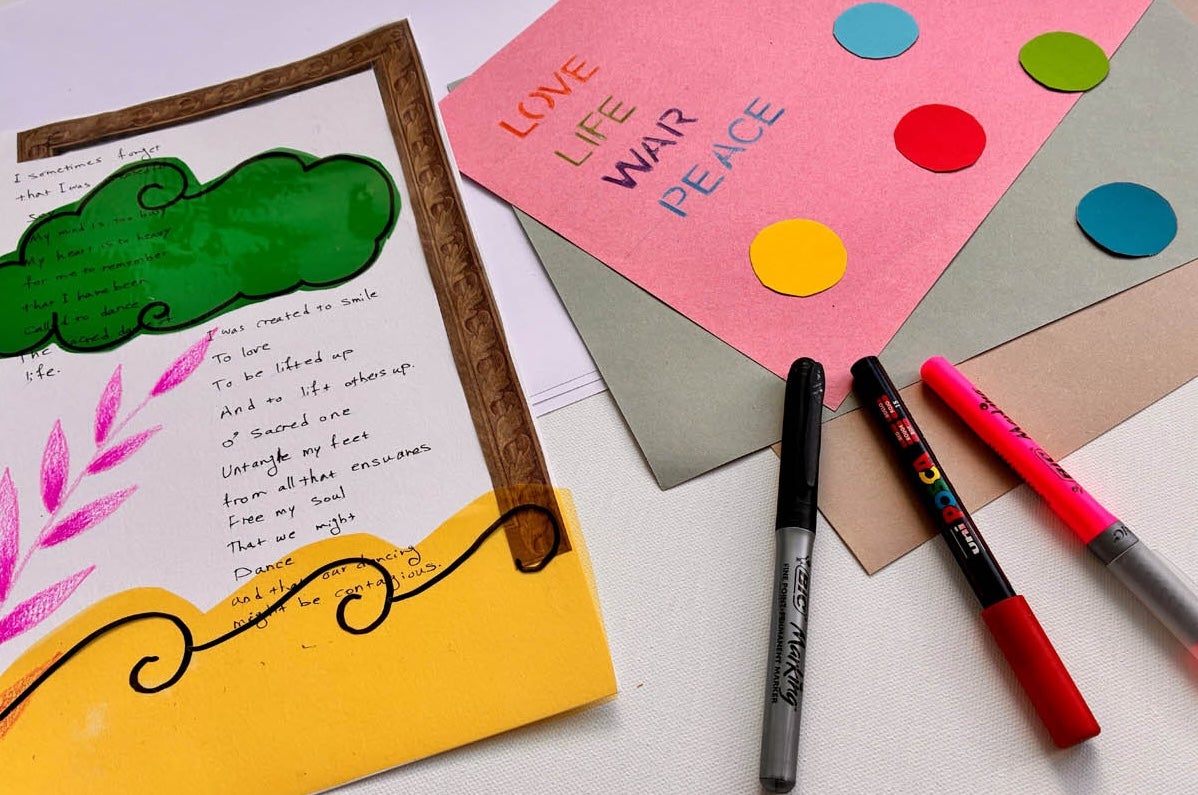 I sometimes forget
that I was
My mind is too busy
My heart is to heavy
for me to remember
that I have been
Called to dance
The sacred dance
life.
I was created to smile
To love
To be lifted up
And to lift others up.
O' Sacred one
Untangle my feet
from all that ensuares
Free my soul
That we might
Dance
and that our dancing
might be contagious.
LOVE
LIFE
WAR
PEACE
BIC Marking
FINE POINT PERMANENT MARKER
uni POSCA
BIC Marking